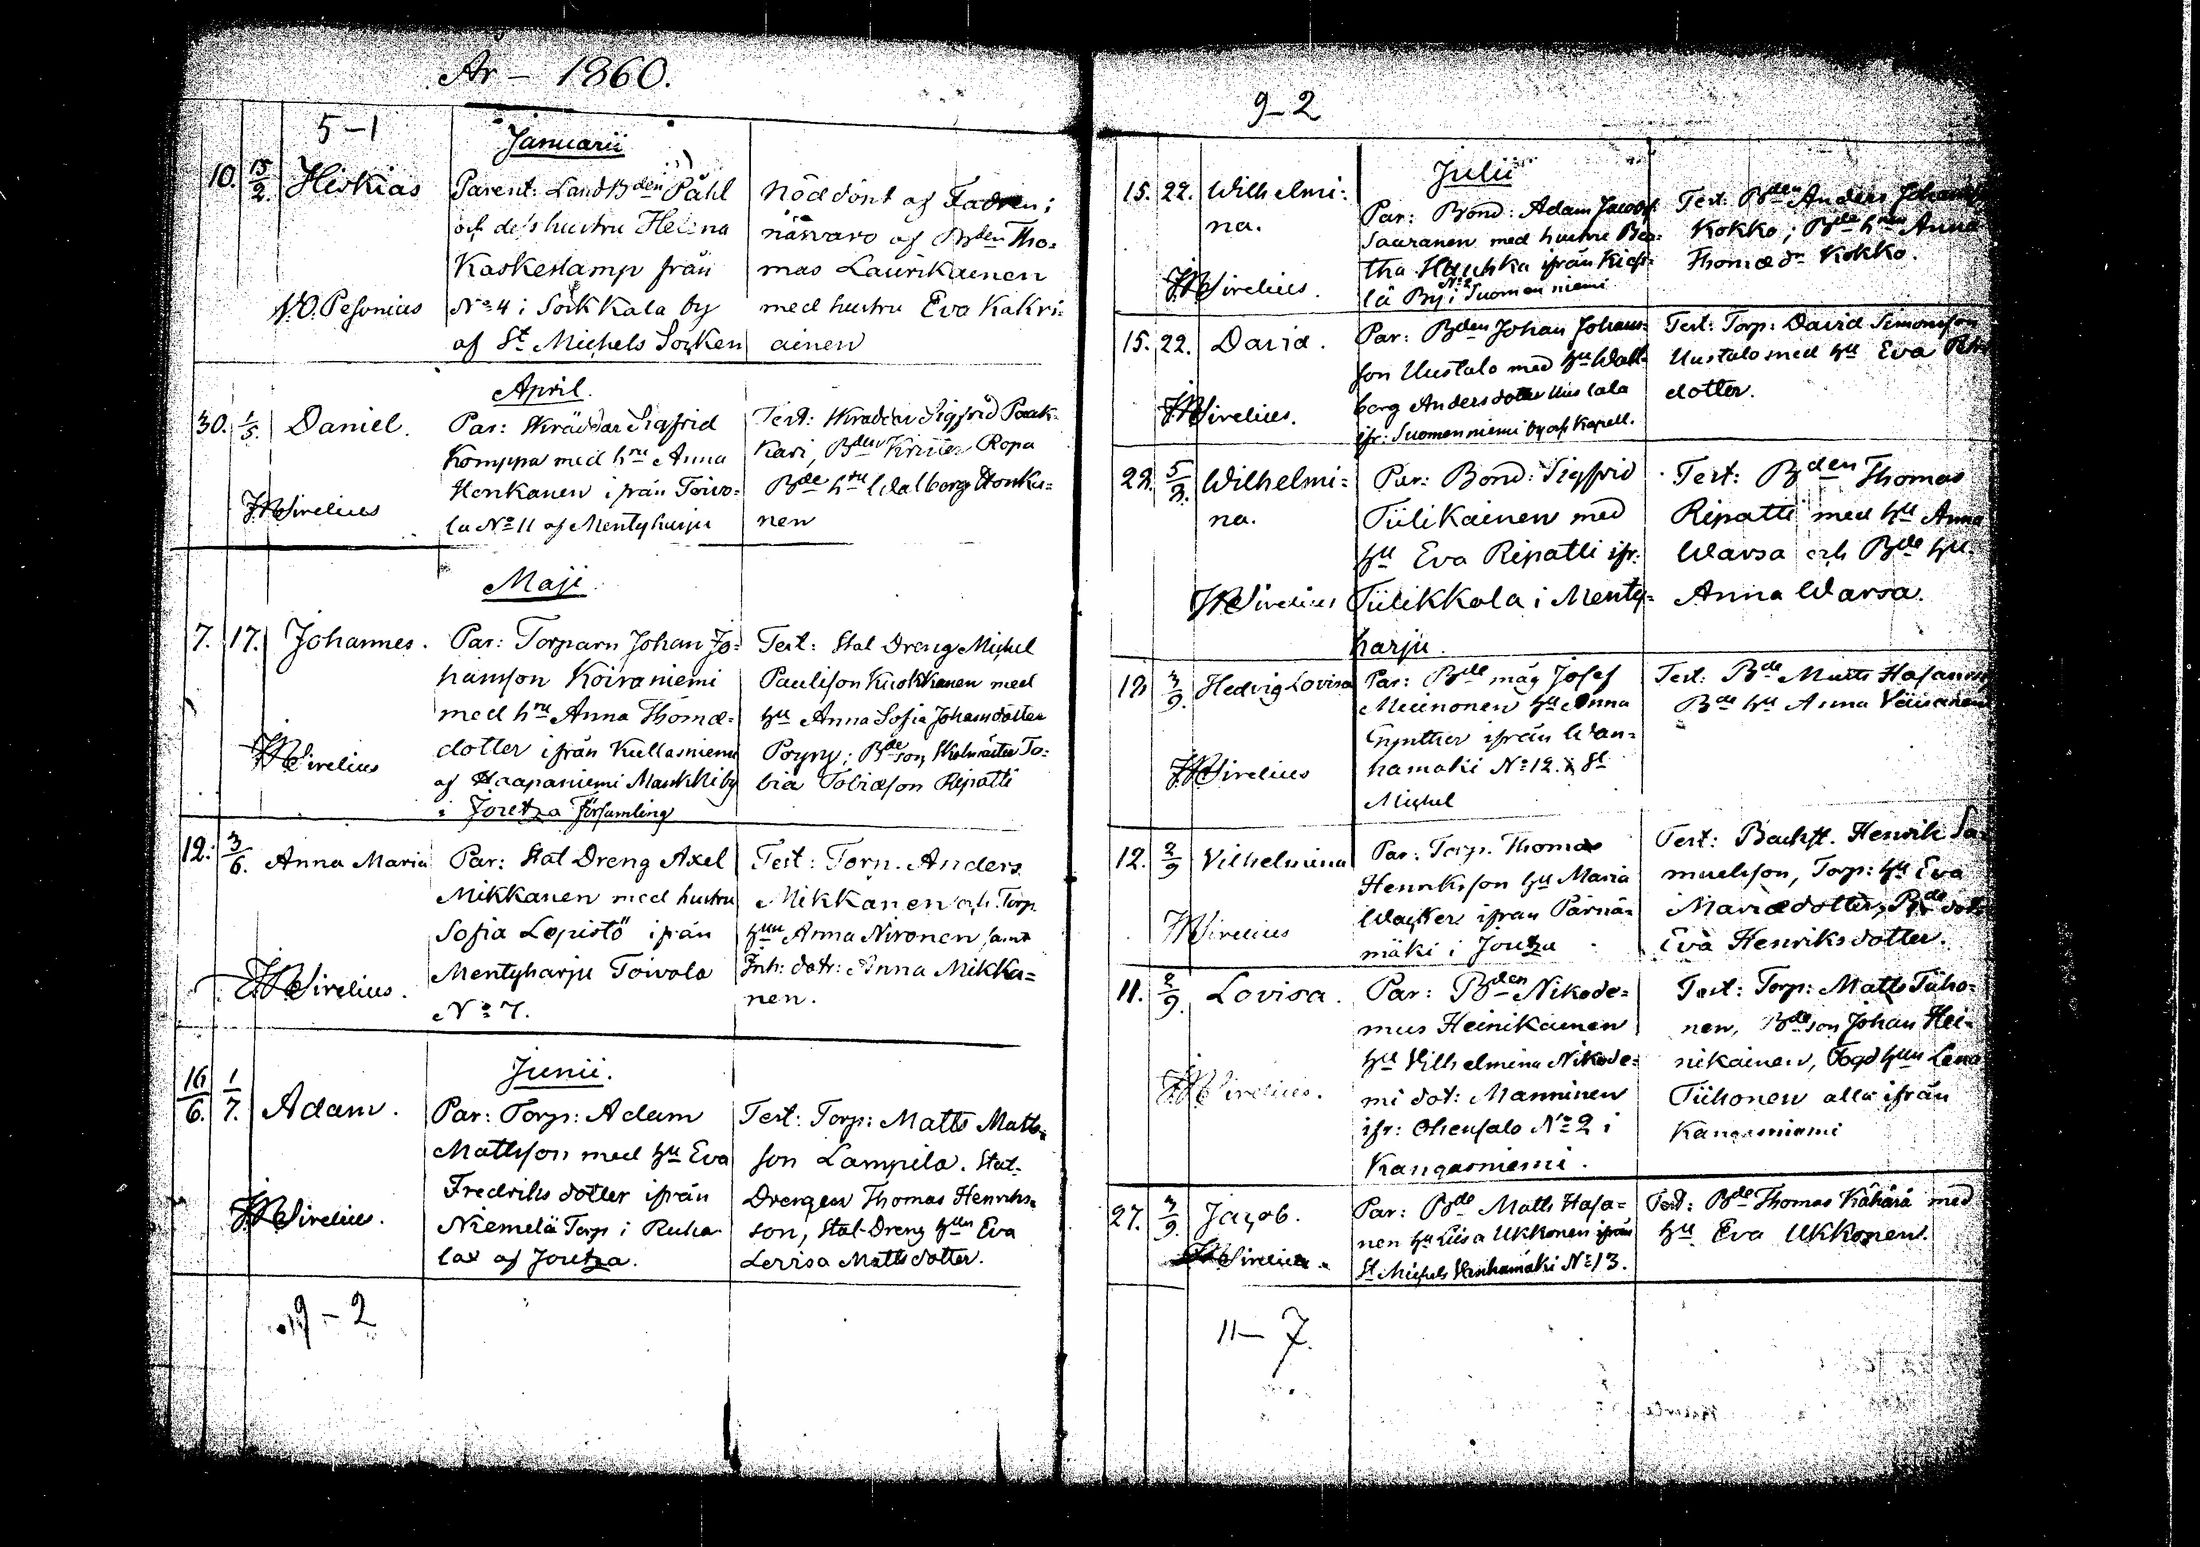 År – 1860.
5–1
Januarii
10. 15/2. Hiskias
Parent: LandBden Påhl
och dess hustru Helena
Kaskeslamp från
No 4 i Soikkala by
af St Michels Socken
Nöddöpt af Fadren;
närvaro af Bden Tho-
mas Laurikainen
med hustru Eva Kakri-
ainen
N.O. Pesonius
April.
30. 1/5. Daniel.
Par: Skräddar Sigfrid
Komppa med hru Anna
Henkanen ifrån Toivo-
la No 11 af Mentyharju
Test: Skräddar Sigfrid Paak-
kari, Bden Krister Ropa
Bde hru Walborg Honka-
nen
Sirelius
Maji
7. 17. Johannes.
Par: Torparn Johan Jo-
hansson Koiraniemi
med hru Anna Thomæ-
dotter ifrån Kullasniemi
af Haapaniemi Maukki by
i Joutza Församling
Test: Stat Dreng Michel
Paulisson Kuokkanen med
hu Anna Sofia Johansdotter
Pöyry; Bdeson, Skolmäster To-
bia Tobiæson Ripatti
Sirelius
12. 3/6. Anna Maria
Par: Stat Dreng Axel
Mikkanen med hustru
Sofia Lepistö ifrån
Mentyharju Toivola
No 7.
Test: Torp. Anders
Mikkänen och Torp
hun Anna Nironen samt
Inh: dotr: Anna Mikka-
nen.
Sirelius.
Junii.
16/6. 1/7. Adam.
Par: Torp: Adam
Mattsson med hu Eva
Fredriksdotter ifrån
Niemelä Torp i Ruha
lax af Joutza.
Test: Torp: Matts Matts-
son Lampila. Stat-
Drengen Thomas Henriks-
son, Stat-Dreng hun Eva
Lovisa Mattsdotter.
Sirelius.
9–2
9–2
Julii
15. 22. Wilhelmi-
na.
Par: Bond: Adam Jacobs:
Sauranen med hustru Bea-
tha Hauhka ifrån
No 2
lä By i Suomenniemi
Test: Bden Anders
Kokko; Bde hru Anna
Thomædr Kokko.
Sirelius.
15. 22. David.
Par: Bden Johan Johans-
son Uustalo med hu Wall-
borg Andersdotter Uustalo
ifr: Suomenniemi by och Kapell.
Test: Torp: David Simonsson
Uustalo med hu Eva
dotter.
Sirelius.
22. 5/8. Wilhelmi-
na.
Par: Bond: Sigfrid
Tiilikainen med
hu Eva Ripatti ifr:
Tiilikkala i Menty-
harju.
Test: Bden Thomas
Ripatti med hu Anna
Warsa och Bde hu
Anna Warsa.
Sirelius
12. Hedvig Lovisa
Par: Bde måg Josef
Meinonen hu Anna
Gynther ifrån Wan-
hamäki No 12. i St
Michel
Test: Bde Matts Hasanen
Bde hu Anna Väisänen
Sirelius
12. 2/9 Vilhelmina
Par: Torp. Thomas
Henriksson hu Maria
Wacker ifrån Pärnä-
mäki i Joutza
Test: Backst. Henrik Sa-
muelsson, Torp: hu Eva
Mariædotter, Bde dotr
Eva Henriksdotter.
Sirelius
11. 2/9. Lovisa.
Par: Bden Nikode-
mus Heinikainen
hu Vilhelmina Nikode-
mi dot: Manninen
ifr: Ohensalo No 2 i
Kangasniemi.
Test: Torp: Matts Tiiho-
nen, Bdeson Johan Hei-
nikainen, Fogd hun Lena
Tiihonen alla ifrån
Kangasniemi
Sirelius.
27. Jacob.
Par: Bde Matts Hasa-
nen hu Liisa Ukkonen ifrån
St Michels Wanhamäki No 13.
Test: Bde Thomas Kähärä med
hu Eva Ukkonen.
Sirelius.
11–7.